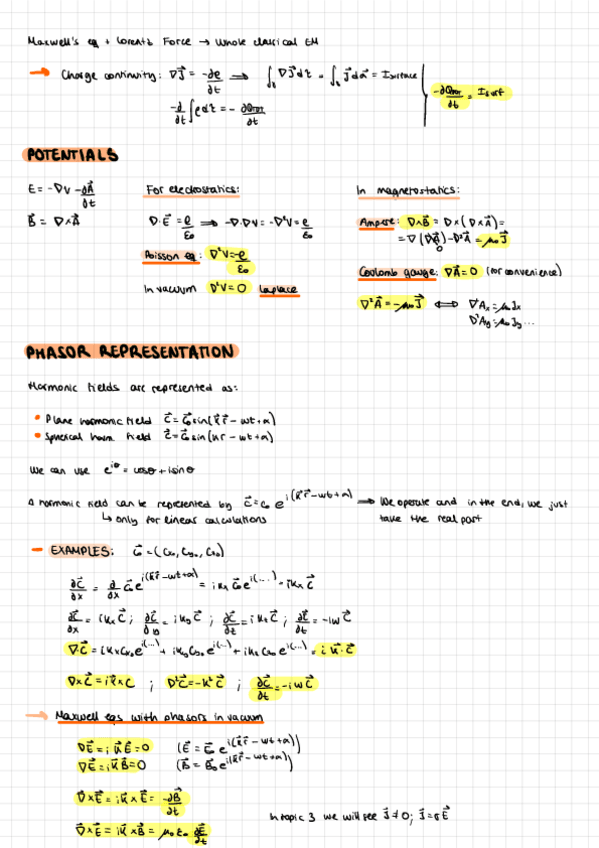 Maxwell's eq + Lorentz Force → Whole classical EM
→ Charge continuity: ∇J⃗ = -∂ρ/∂t ⟹ ∫₀ ∇J⃗ dτ = ∫₀ J⃗ da⃗ = Isurface
-∂/∂t ∫ρdτ = - ∂QTOT/∂t
-∂QTOT/∂t = Isurf
POTENTIALS
E = -∇V - ∂A⃗/∂t
B⃗ = ∇×A⃗
For electrostatics:
∇·E⃗ = ρ/ε₀ ⟹ -∇·∇V = -∇²V = ρ/ε₀
Poisson eq: ∇²V = -ρ/ε₀
In vacuum ∇²V = 0 Laplace
In magnetostatics:
Ampere: ∇×B⃗ = ∇×(∇×A⃗) =
= ∇(∇A⃗) - ∇²A⃗ = μ₀J⃗
0
Coulomb gauge: ∇A⃗ = 0 (for convenience)
∇²A⃗ = -μ₀J⃗ ⟺ ∇²Ax = μ₀Jx
∇²Ay = μ₀Jy ...
PHASOR REPRESENTATION
Harmonic fields are represented as:
• Plane harmonic field C⃗ = C⃗₀ sin(k⃗r⃗ - wt + α)
• Spherical harm field C⃗ = C⃗₀ sin(kr - wt + α)
We can use e^iθ = cosθ + isinθ
A harmonic field can be represented by C⃗ = C₀ e^i(k⃗r⃗ - wt + α) ⟹ We operate and in the end, we just
↳ only for linear calculations
take the real part
- EXAMPLES: C⃗₀ = (Cx₀, Cy₀, Cz₀)
∂C⃗/∂x = ∂/∂x C⃗₀ e^i(k⃗r⃗ - wt + α) = ikx C⃗₀ e^i(...) = ikx C⃗
∂C⃗/∂x = ikx C⃗ ; ∂C⃗/∂y = iky C⃗ ; ∂C⃗/∂z = ikz C⃗ ; ∂C⃗/∂t = -iw C⃗
∇·C⃗ = ikx Cx₀ e^i(...) + iky Cy₀ e^i(...) + ikz Cz₀ e^i(...) = i k⃗·C⃗
∇×C⃗ = ik⃗×C ; ∇²C⃗ = -k²C⃗ ; ∂C⃗/∂t = -iwC⃗
→ Maxwell eqs with phasors in vacuum
∇E⃗ = i k⃗E⃗ = 0 (E⃗ = E⃗₀ e^i(k⃗r⃗ - wt + α))
∇E⃗ = i k⃗B⃗ = 0 (B⃗ = B⃗₀ e^i(k⃗r⃗ - wt + α))
∇×E⃗ = ik⃗×E⃗ = -∂B⃗/∂t
∇×E⃗ = ik⃗×B⃗ = μ₀ε₀ ∂E⃗/∂t
In topic 3 we will see J⃗ ≠ 0; J⃗ = σE⃗